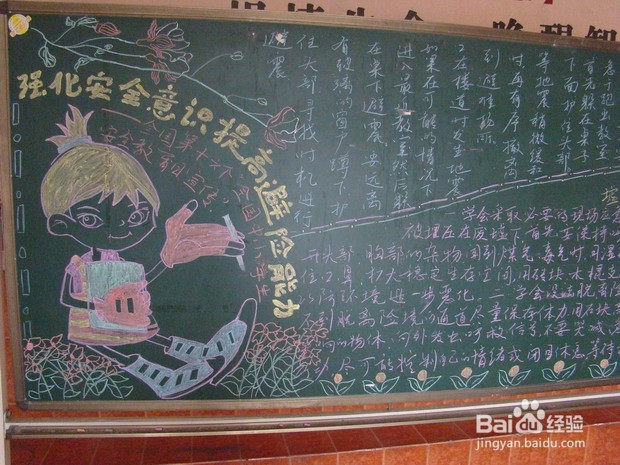 强化安全意识提高避险能力
首先躲在桌子
下面护住头部
等地震稍微缓和
时再有序撤离
到避难场所
2在楼道时发生地震
如果在可能的情况下
进入最近教室然后躲
在桌下避震要远离
有玻璃的窗户蹲下护
住头部寻找时机进行
避震
一学会采取必要的现场应急
被埋压在废墟下首先要保持
开头部、胸部的杂物闻到煤气、毒气时,用湿
住口、鼻;扩大稳定生存空间,用砖块木棍支
环境进一步恶化。二学会设法脱离险
到脱离险境的通道尽量保存体力用石块
的物体、向外发出呼救信号不要哭喊
尽可能控制自己的情绪或闭目休息等待
Baidu经验
jingyan.baidu.com